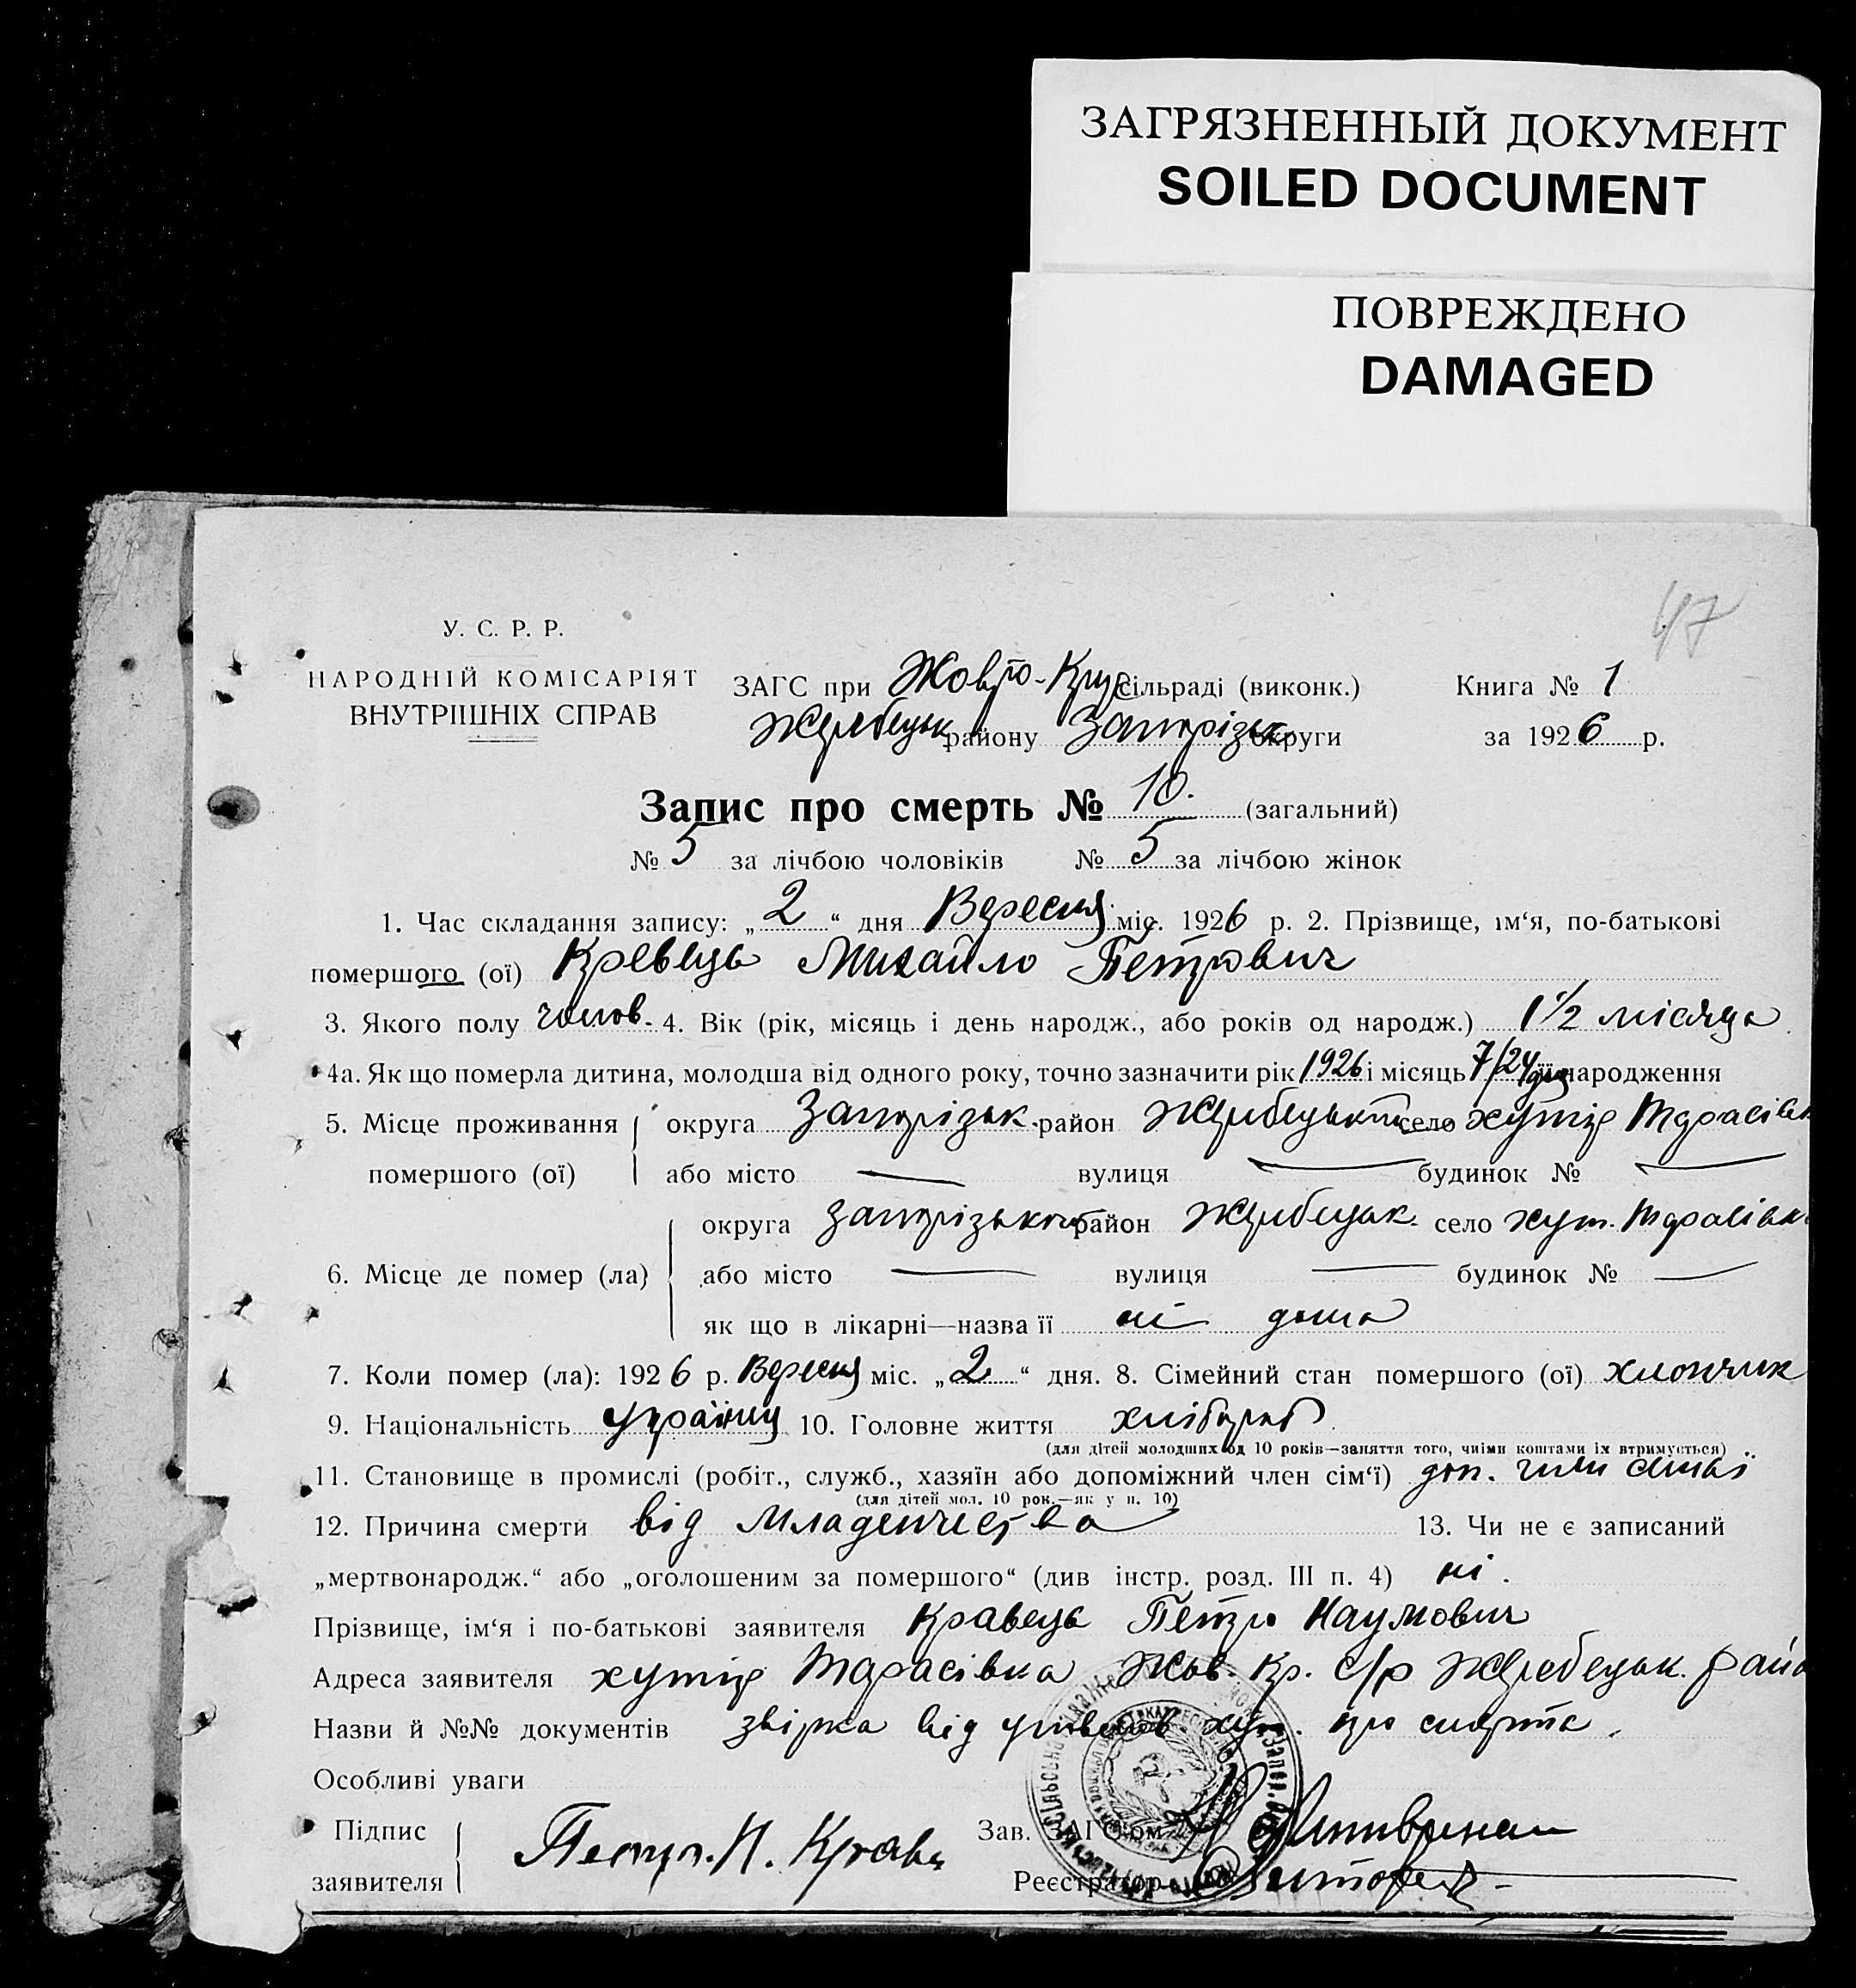 ЗАГРЯЗНЕННЫЙ ДОКУМЕНТ
SOILED DOCUMENT
ПОВРЕЖДЕНО
DAMAGED
47
У. С. Р. Р.
НАРОДНІЙ КОМІСАРІЯТ
ВНУТРІШНІХ СПРАВ
ЗАГС при Жовто-Крус сільраді (виконк.)
Жеребецьк району Запорізьк округи
Книга № 1
за 1926 р.
Запис про смерть № 10. (загальний)
№ 5 за лічбою чоловіків № 5 за лічбою жінок
1. Час складання запису: „2“ дня Вересня міс. 1926 р. 2. Прізвище, ім‘я, по-батькові
помершого (ої) Кревець Михайло Петрович
3. Якого полу чолов. 4. Вік (рік, місяць і день народж., або років од народж.) 1 1/2 місяця
4а. Як що померла дитина, молодша від одного року, точно зазначити рік 1926 і місяць 7/24 дня народження
5. Місце проживання помершого (ої) округа Запорізьк. район Жеребецький село хутір Тарасівк
або місто — вулиця — будинок № —
6. Місце де помер (ла) округа Запорізької район Жеребецьк. село хут. Тарасівк
або місто — вулиця — будинок № —
як що в лікарні—назва її ні дома
7. Коли помер (ла): 1926 р. Вересня міс. „2“ дня. 8. Сімейний стан помершого (ої) хлопчик
9. Національність україн 10. Головне життя хлібороб
(для дітей молодших од 10 років—заняття того, чиїми коштами їх втримується)
11. Становище в промислі (робіт., служб., хазяїн або допоміжний член сім‘ї) доп. член сімьї
(для дітей мол. 10 рок.—як у п. 10)
12. Причина смерти від младенчества 13. Чи не є записаний
„мертвонародж.“ або „оголошеним за помершого“ (див інстр. розд. III п. 4) ні.
Прізвище, ім‘я і по-батькові заявителя Кравець Петро Наумович
Адреса заявителя хутір Тарасівка Жов. Кр. с/р Жеребецьк. райо
Назви й №№ документів від хут. про смерть.
Особливі уваги
Підпис заявителя Петро. Н. Кравец
Зав. ЗАГСом
Реєстратор